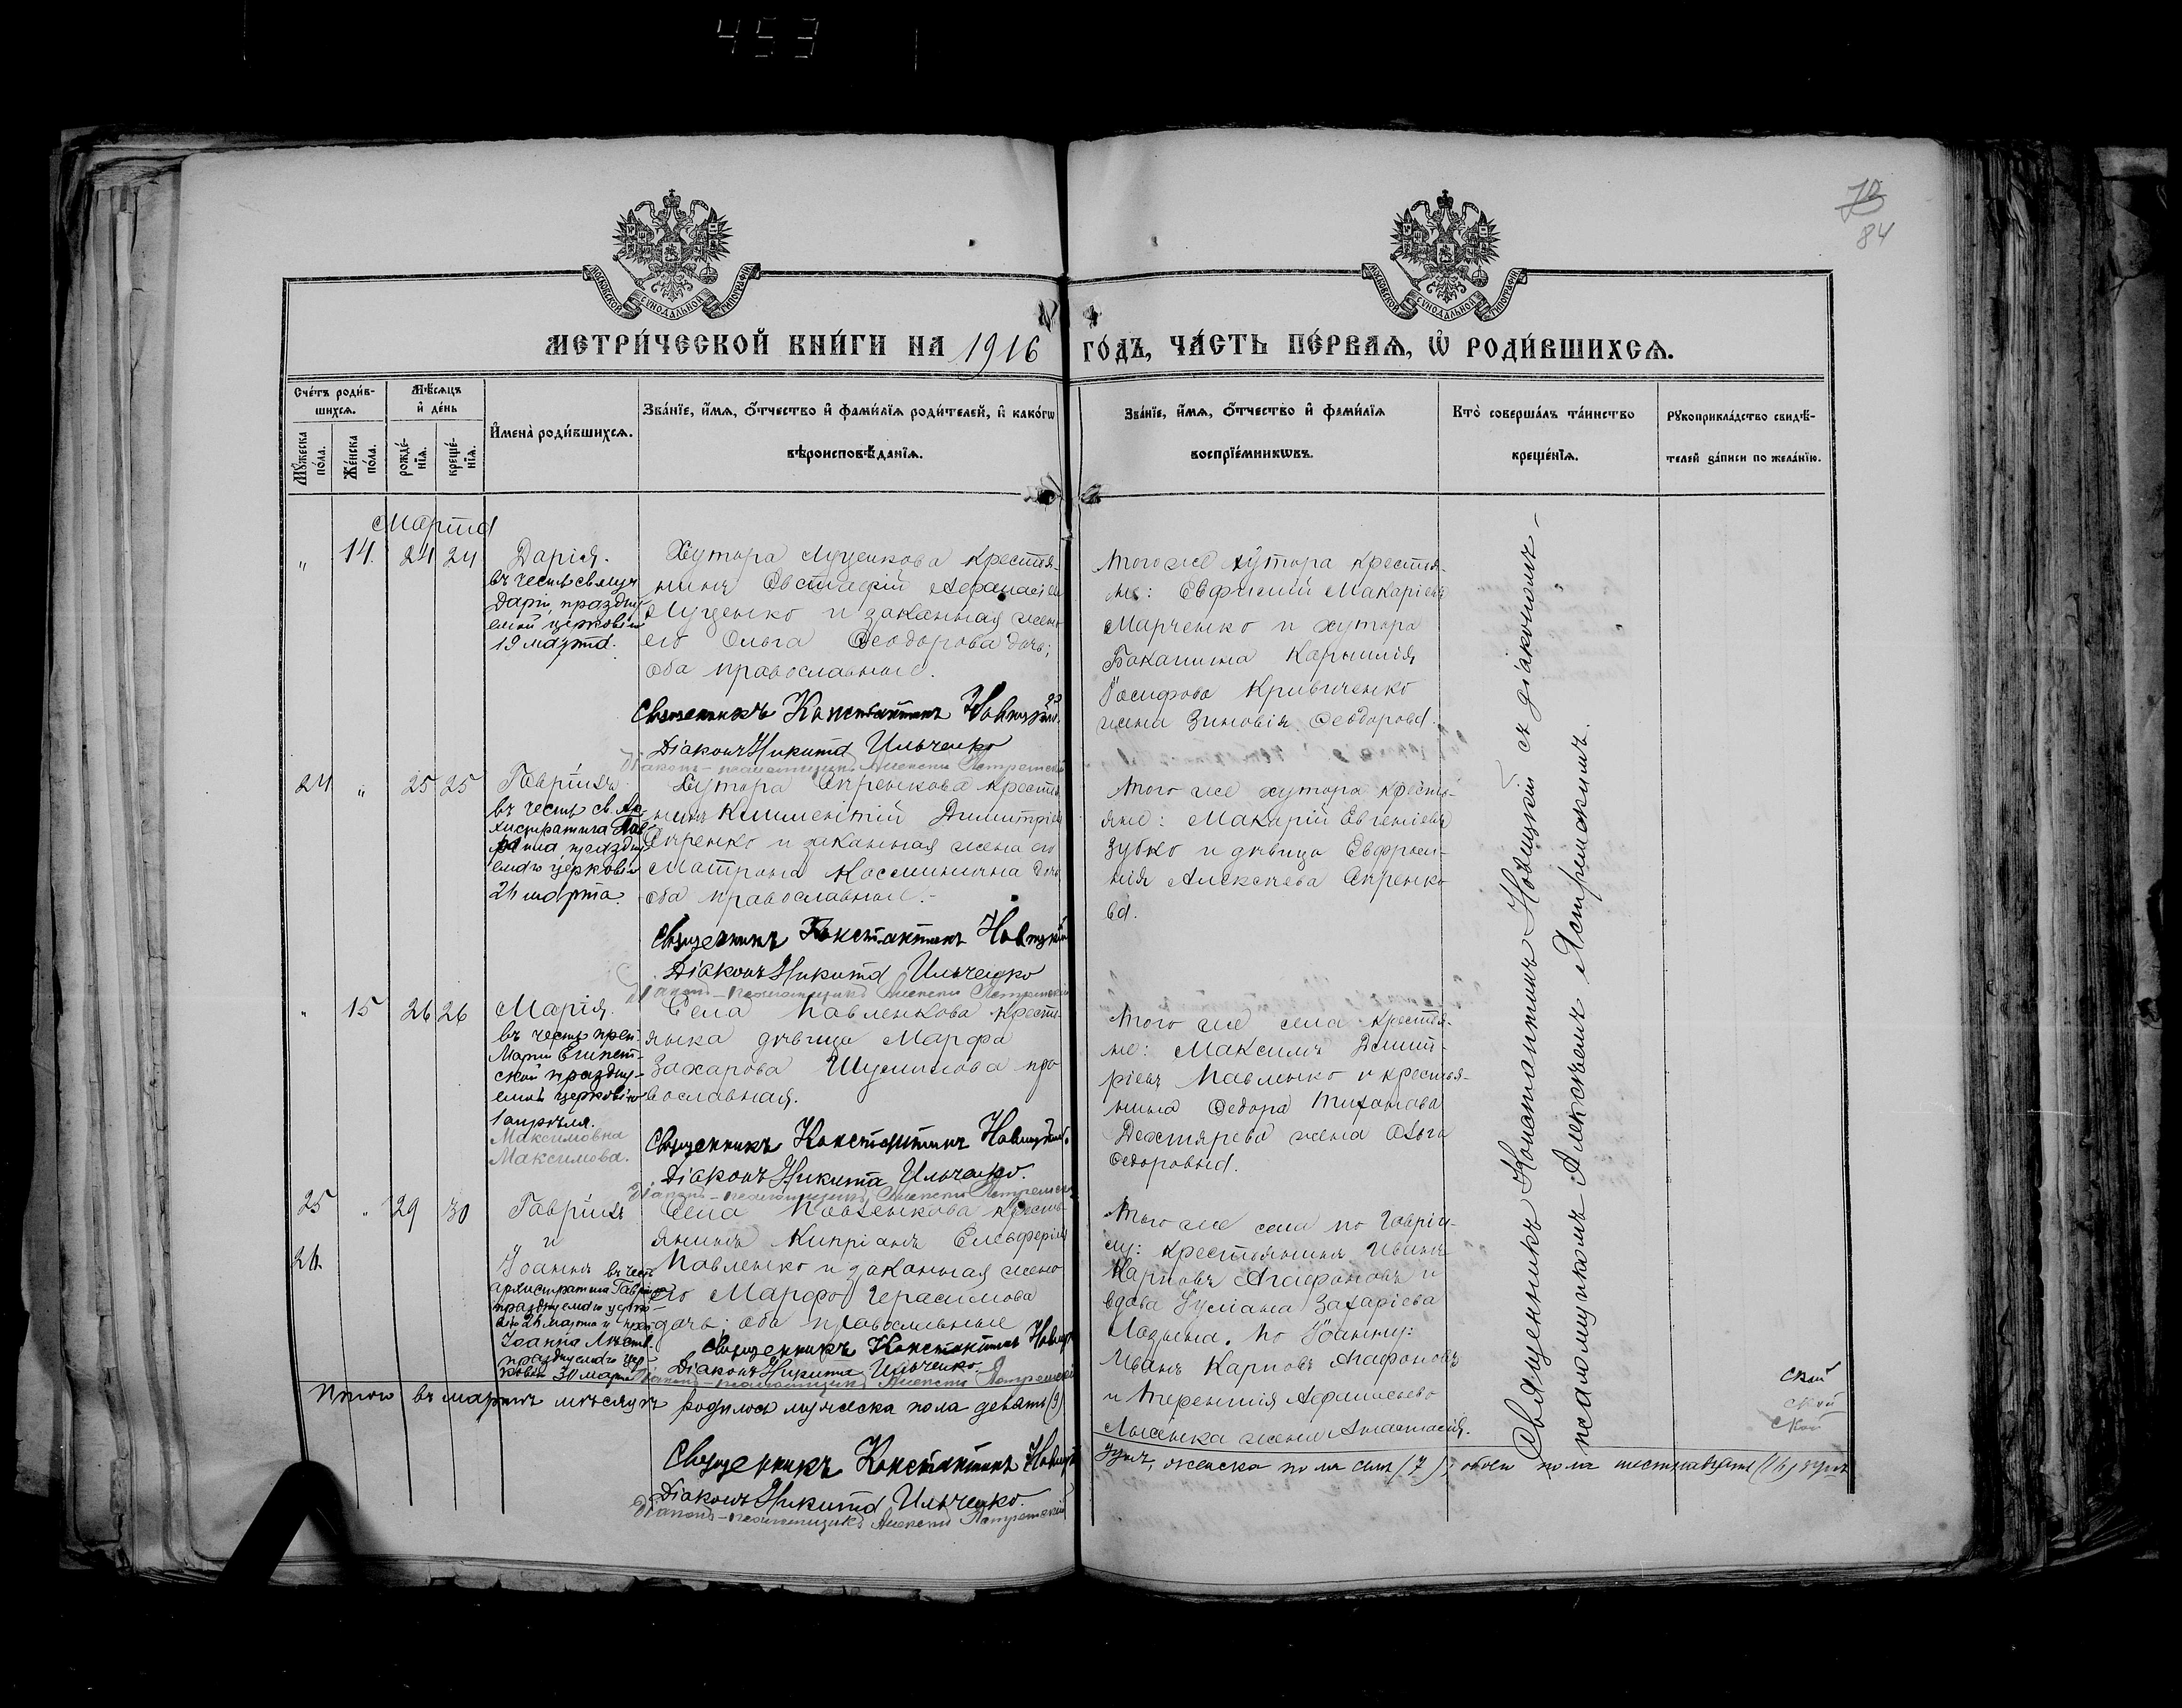 453
70
84
МОСКОВСКОЙ СѴНОДАЛЬНОЙ ТИПОГРАФІИ
МОСКОВСКОЙ СѴНОДАЛЬНОЙ ТИПОГРАФІИ
МЕТРИ́ЧЕСКОЙ КНИ́ГИ НА 1916 ГО́ДЪ, ЧА́СТЬ ПЕ́РВАЯ, Ѡ РОДИ́ВШИХСЯ.
Сче́тъ роди́в-
шихся.
Мꙋ́жеска по́ла.
Же́нска по́ла.
Мѣ́сяцъ
и҆ де́нь
рожде́-
нїя.
креще́-
нїя.
И҆мена̀ роди́вшихся.
Зва́нїе, и҆́мя, ѻ҆́тчество и҆ фами́лїя роди́телей, и҆ како́гѡ
вѣроисповѣ́данїя.
Зва́нїе, и҆́мя, ѻ҆́тчество и҆ фами́лїя
воспрїе́мникѡвъ.
Кто̀ соверша́лъ та́инство
креще́нїя.
Рꙋкоприкла́дство свидѣ́-
телей за́писи по жела́нїю.
Марта
" 14. 24 24
Дарія.
въ честь св. муч.
Дарія, праздну-
емой церковію
19 марта.
Хутора Луценкова крестья-
нинъ Евстафій Афанасіевъ
Луценко и законная жена
его Ольга Ѳеодорова дочь;
оба православные.
Священникъ Константинъ Новицкій.
Діаконъ Никита Ильченко
Діаконъ-псаломщикъ Алексѣй Ястремскій
того же хутора крестья-
не: Евфимій Макаріевъ
Марченко и хутора
Бакалина Карнилія
Іосифова Кривиченко
жена Зиновія Ѳеодорова.
24 " 25 25
Гавріилъ
въ честь св. Ар-
хистратига Гав-
ріила праздну-
емаго церковію
26 марта.
Хутора крестья-
нинъ Климентій Димитріевъ
и законная жена его
Матрона Космина дочь
оба православные.-
Священникъ Константинъ Новицкій
Діаконъ Никита Ильченко
Діаконъ-псаломщикъ Алексѣй Ястремскій
того же хутора крестья-
яне: Макарій Евгеніевъ
Зубко и дѣвица Евфроси-
нія Алексѣева
ва.
" 15 26 26
Марія.
въ честь преп.
Маріи Египет-
ской праздну-
емой церковію
1 апрѣля.
Максимовна
Максимова.
Села Павленкова кресть-
янка дѣвица Марфа
Захарова Шумилова пра-
вославная.
Священникъ Константинъ Новицкій.
Діаконъ Никита Ильченко.
Діаконъ-псаломщикъ Алексѣй Ястремскій
того же села крестья-
не: Максимъ Димит-
ріевъ Павленко и крестья-
нина Ѳедора Тихонова
Дехтярева жена Ольга
Ѳедоровна.
25 " 29 30
26
Гавріилъ
и
Іоаннъ въ честь
архистратига Гавріила
празднуемаго церко-
вію 26 марта и преп.
Іоанна Лѣств.
празднуемаго цер-
ковію 30 марта
Села Павленкова кресть-
янинъ Кипріанъ Елевферіевъ
Павленко и законная жена
его Марфа Герасимова
дочь; оба православные
Священникъ Константинъ Новицкій
Діаконъ Никита Ильченко.
Діаконъ-псаломщикъ Алексѣй Ястремскій
того же села по Гаврі-
илу: крестьянинъ Иванъ
Карповъ Агафоновъ и
вдова Іуліана Захаріева
Лазъна. По Іоанну:
Иванъ Карповъ Агафоновъ
и Терентія Афанасьева
Лысенка жена Анастасія.
Священникъ Константинъ Новицкій съ діакономъ-
псаломщикомъ Алексѣемъ Ястремскимъ.
ской
ской
ской
Итого въ мартѣ мѣсяцѣ родилось мужеска пола девять (9)
душъ, женска пола семь (7); обоего пола шестнадцать (16) душъ
Священникъ Константинъ Новицкій
Діаконъ Никита Ильченко.
Діаконъ-псаломщикъ Алексѣй Ястремскій